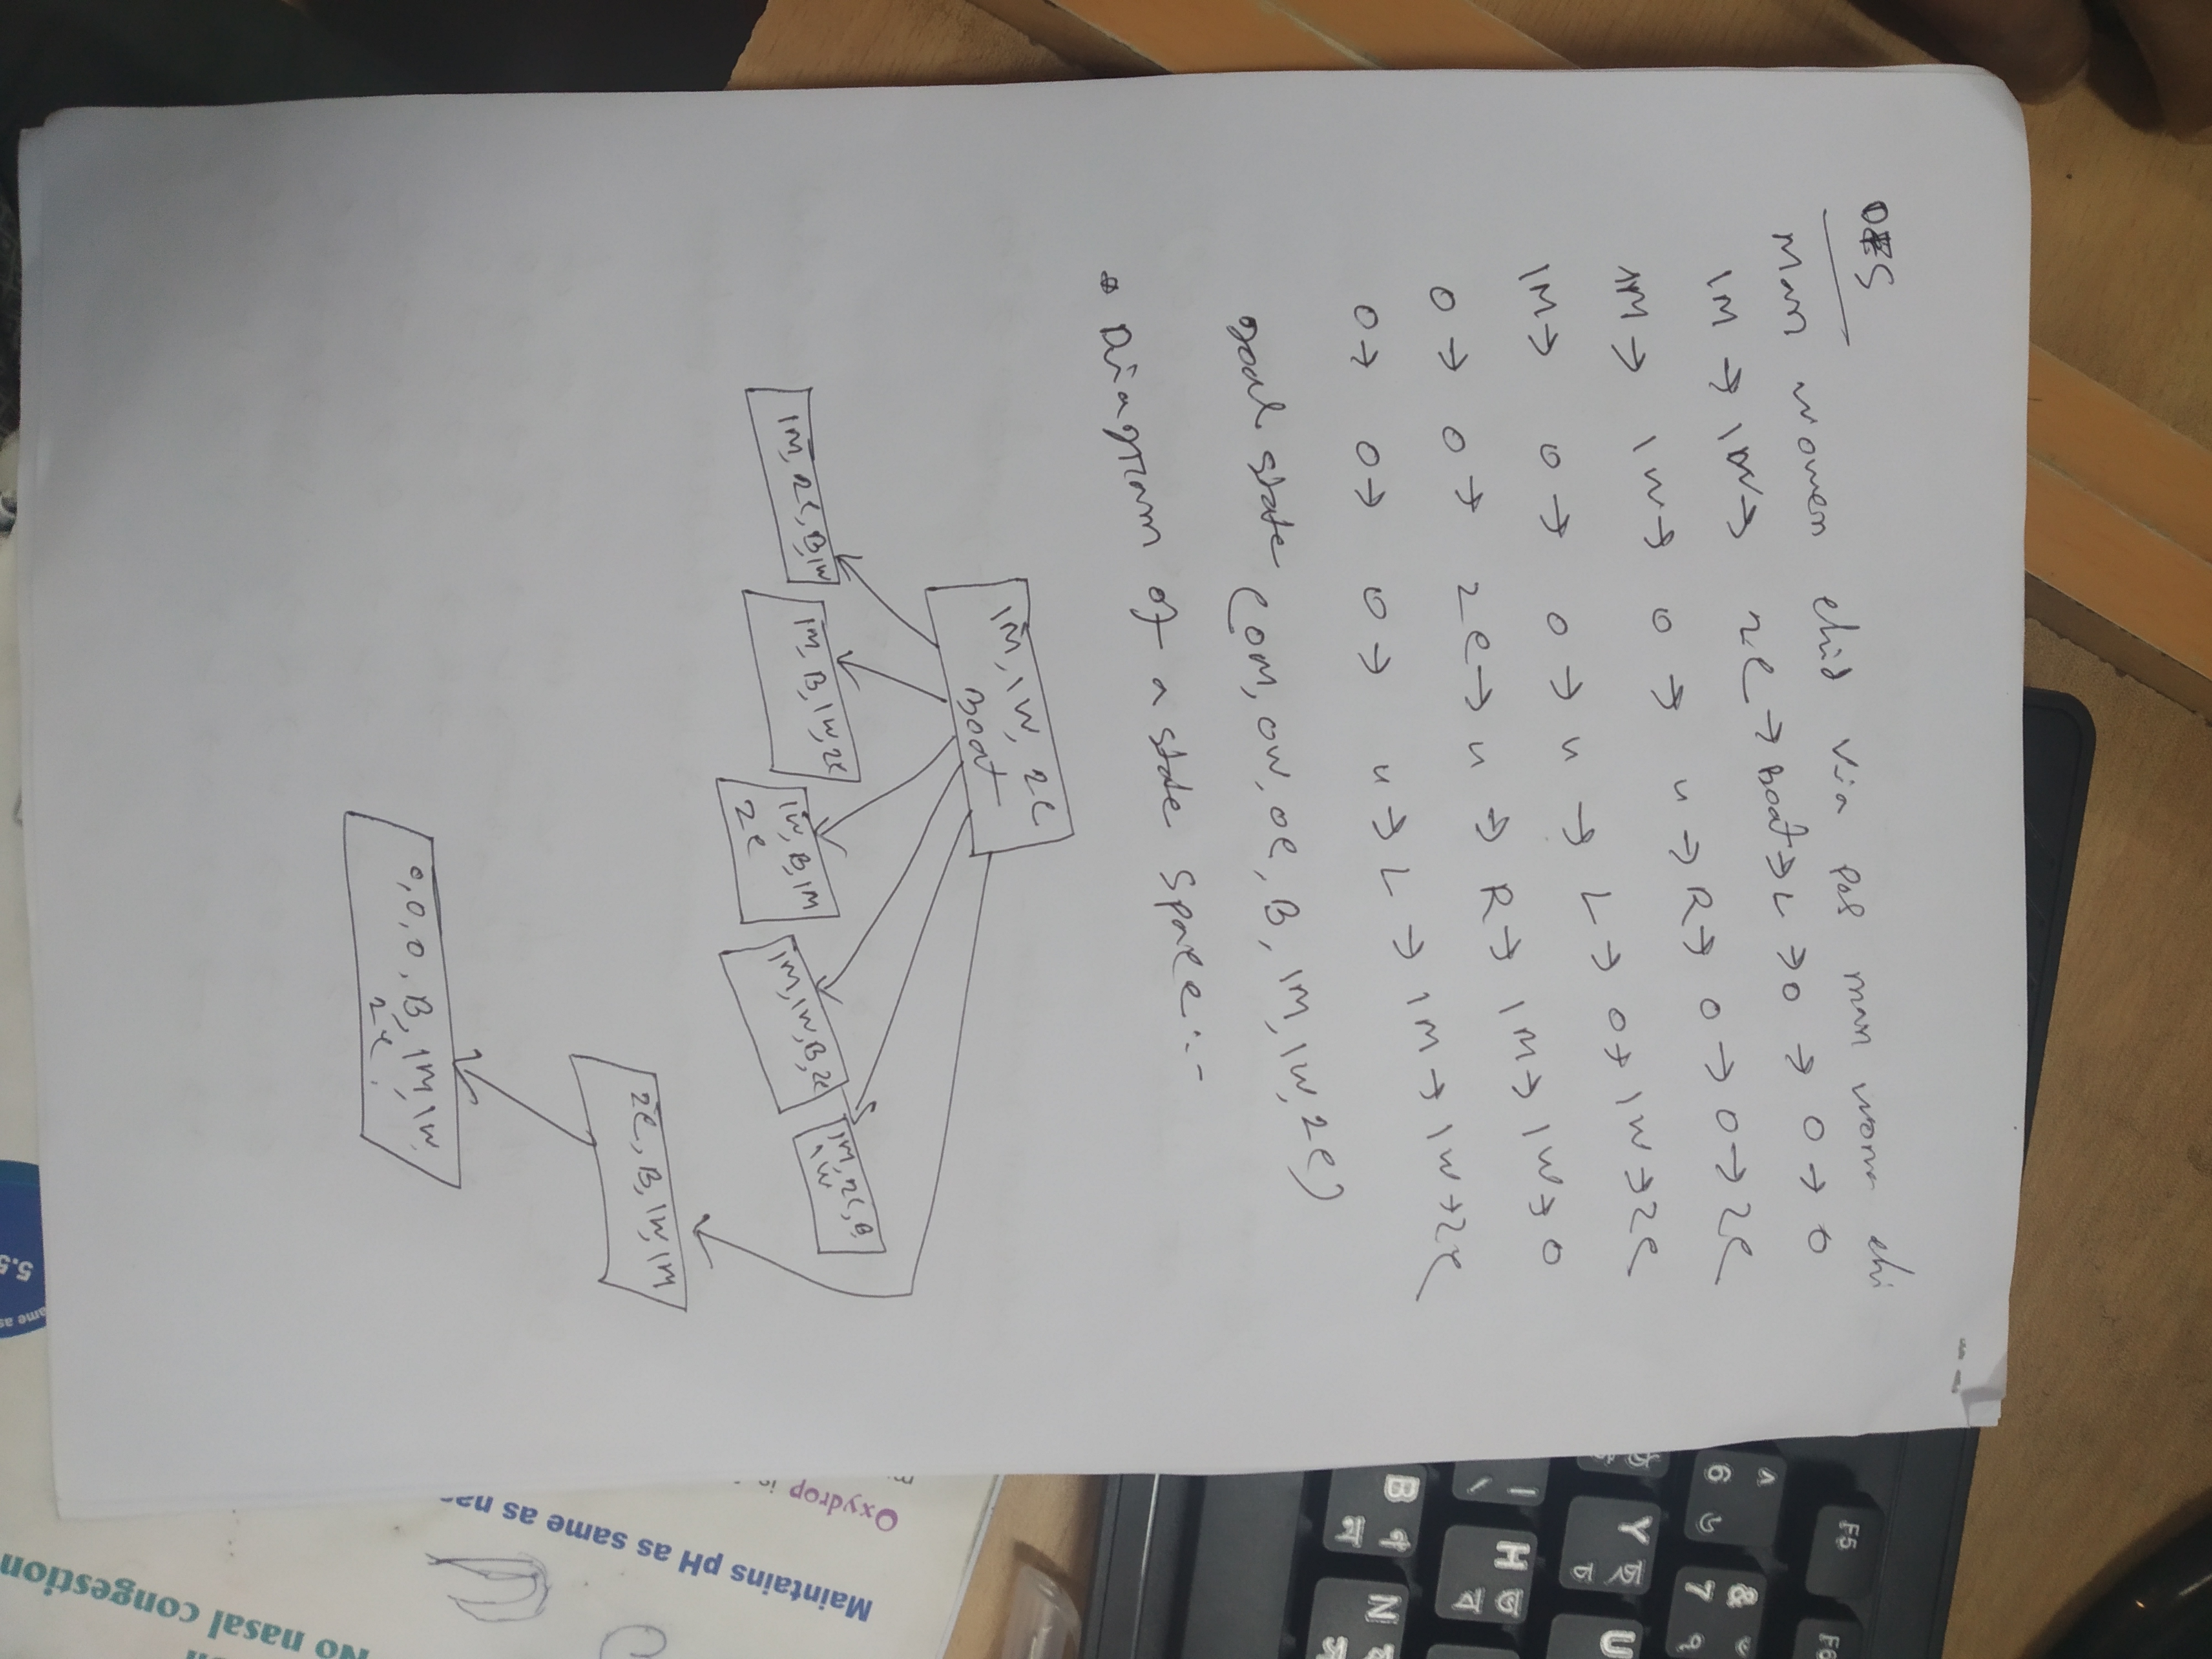 Man women chid via pos man woma chi
1M → 1W → 2C → Boat → L → 0 → 0 → 0
1M → 1W → 0 → u → R → 0 → 0 → 2C
1M → 0 → 0 → u → L → 0 → 1W → 2C
0 → 0 → 2C → u → R → 1M → 1W → 0
0 → 0 → 0 → u → L → 1M → 1W → 2C
goal state (0M, 0W, 0C, B, 1M, 1W, 2C)
Diagram of a state space :-
1M, 1W, 2C
Boat
1M, 2C, B, 1W
1M, B, 1W, 2C
1W, B, 1M
2C
1M, 1W, B, 2C
1M, 2C, B,
1W
2C, B, 1W, 1M
0, 0, 0, B, 1M, 1W,
2C.
Oxydrop is
Maintains pH as same as nas
No nasal congestion
5.5
ame as
F5
F6
^
6
৬
&
7
৭
Y
U
H
B
ন
N
!